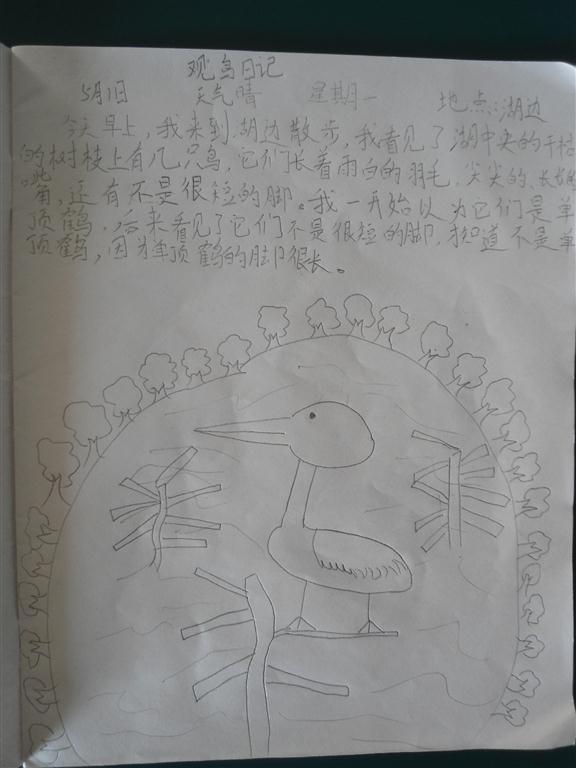 观鸟日记
5月1日 天气晴 星期一 地点:湖边
今天早上,我来到湖边散步,我看见了湖中央的干枯
的树枝上有几只鸟,它们长着雨白的羽毛,尖尖的、长长的
嘴角,还有不是很短的脚。我一开始以为它们是单
顶鹤,后来看见了它们不是很短的脚,才知道不是单
顶鹤,因为单顶鹤的脚很长。